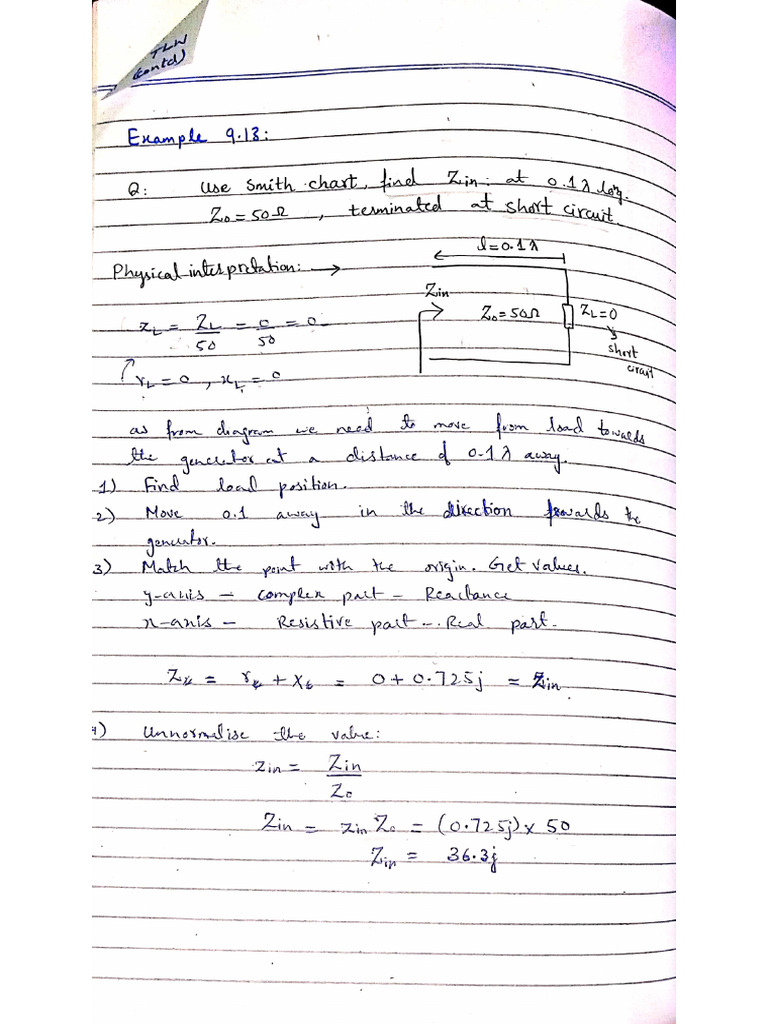 TLW
(contd)
Example 9.13:
Q: Use Smith chart, find Zin: at 0.1λ long.
Z₀ = 50Ω , terminated at short circuit.
l=0.1λ
Physical interpretation: →
Zin
Z₀ = 50Ω
ZL=0
short
circuit
zL = ZL/50 = 0/50 = 0
rL = 0 , xL = 0
as from diagram we need to move from load towards
the generator at a distance of 0.1λ away.
1) Find load position.
2) Move 0.1 away in the direction towards the
generator.
3) Match the point with the origin. Get values.
y-axis – complex part – Reactance
x-axis – Resistive part – Real part.
= 0 + 0.725j = Zin
4) Unnormalise the value:
zin = Zin/Z₀
Zin = zin Z₀ = (0.725j) × 50
Zin = 36.3j